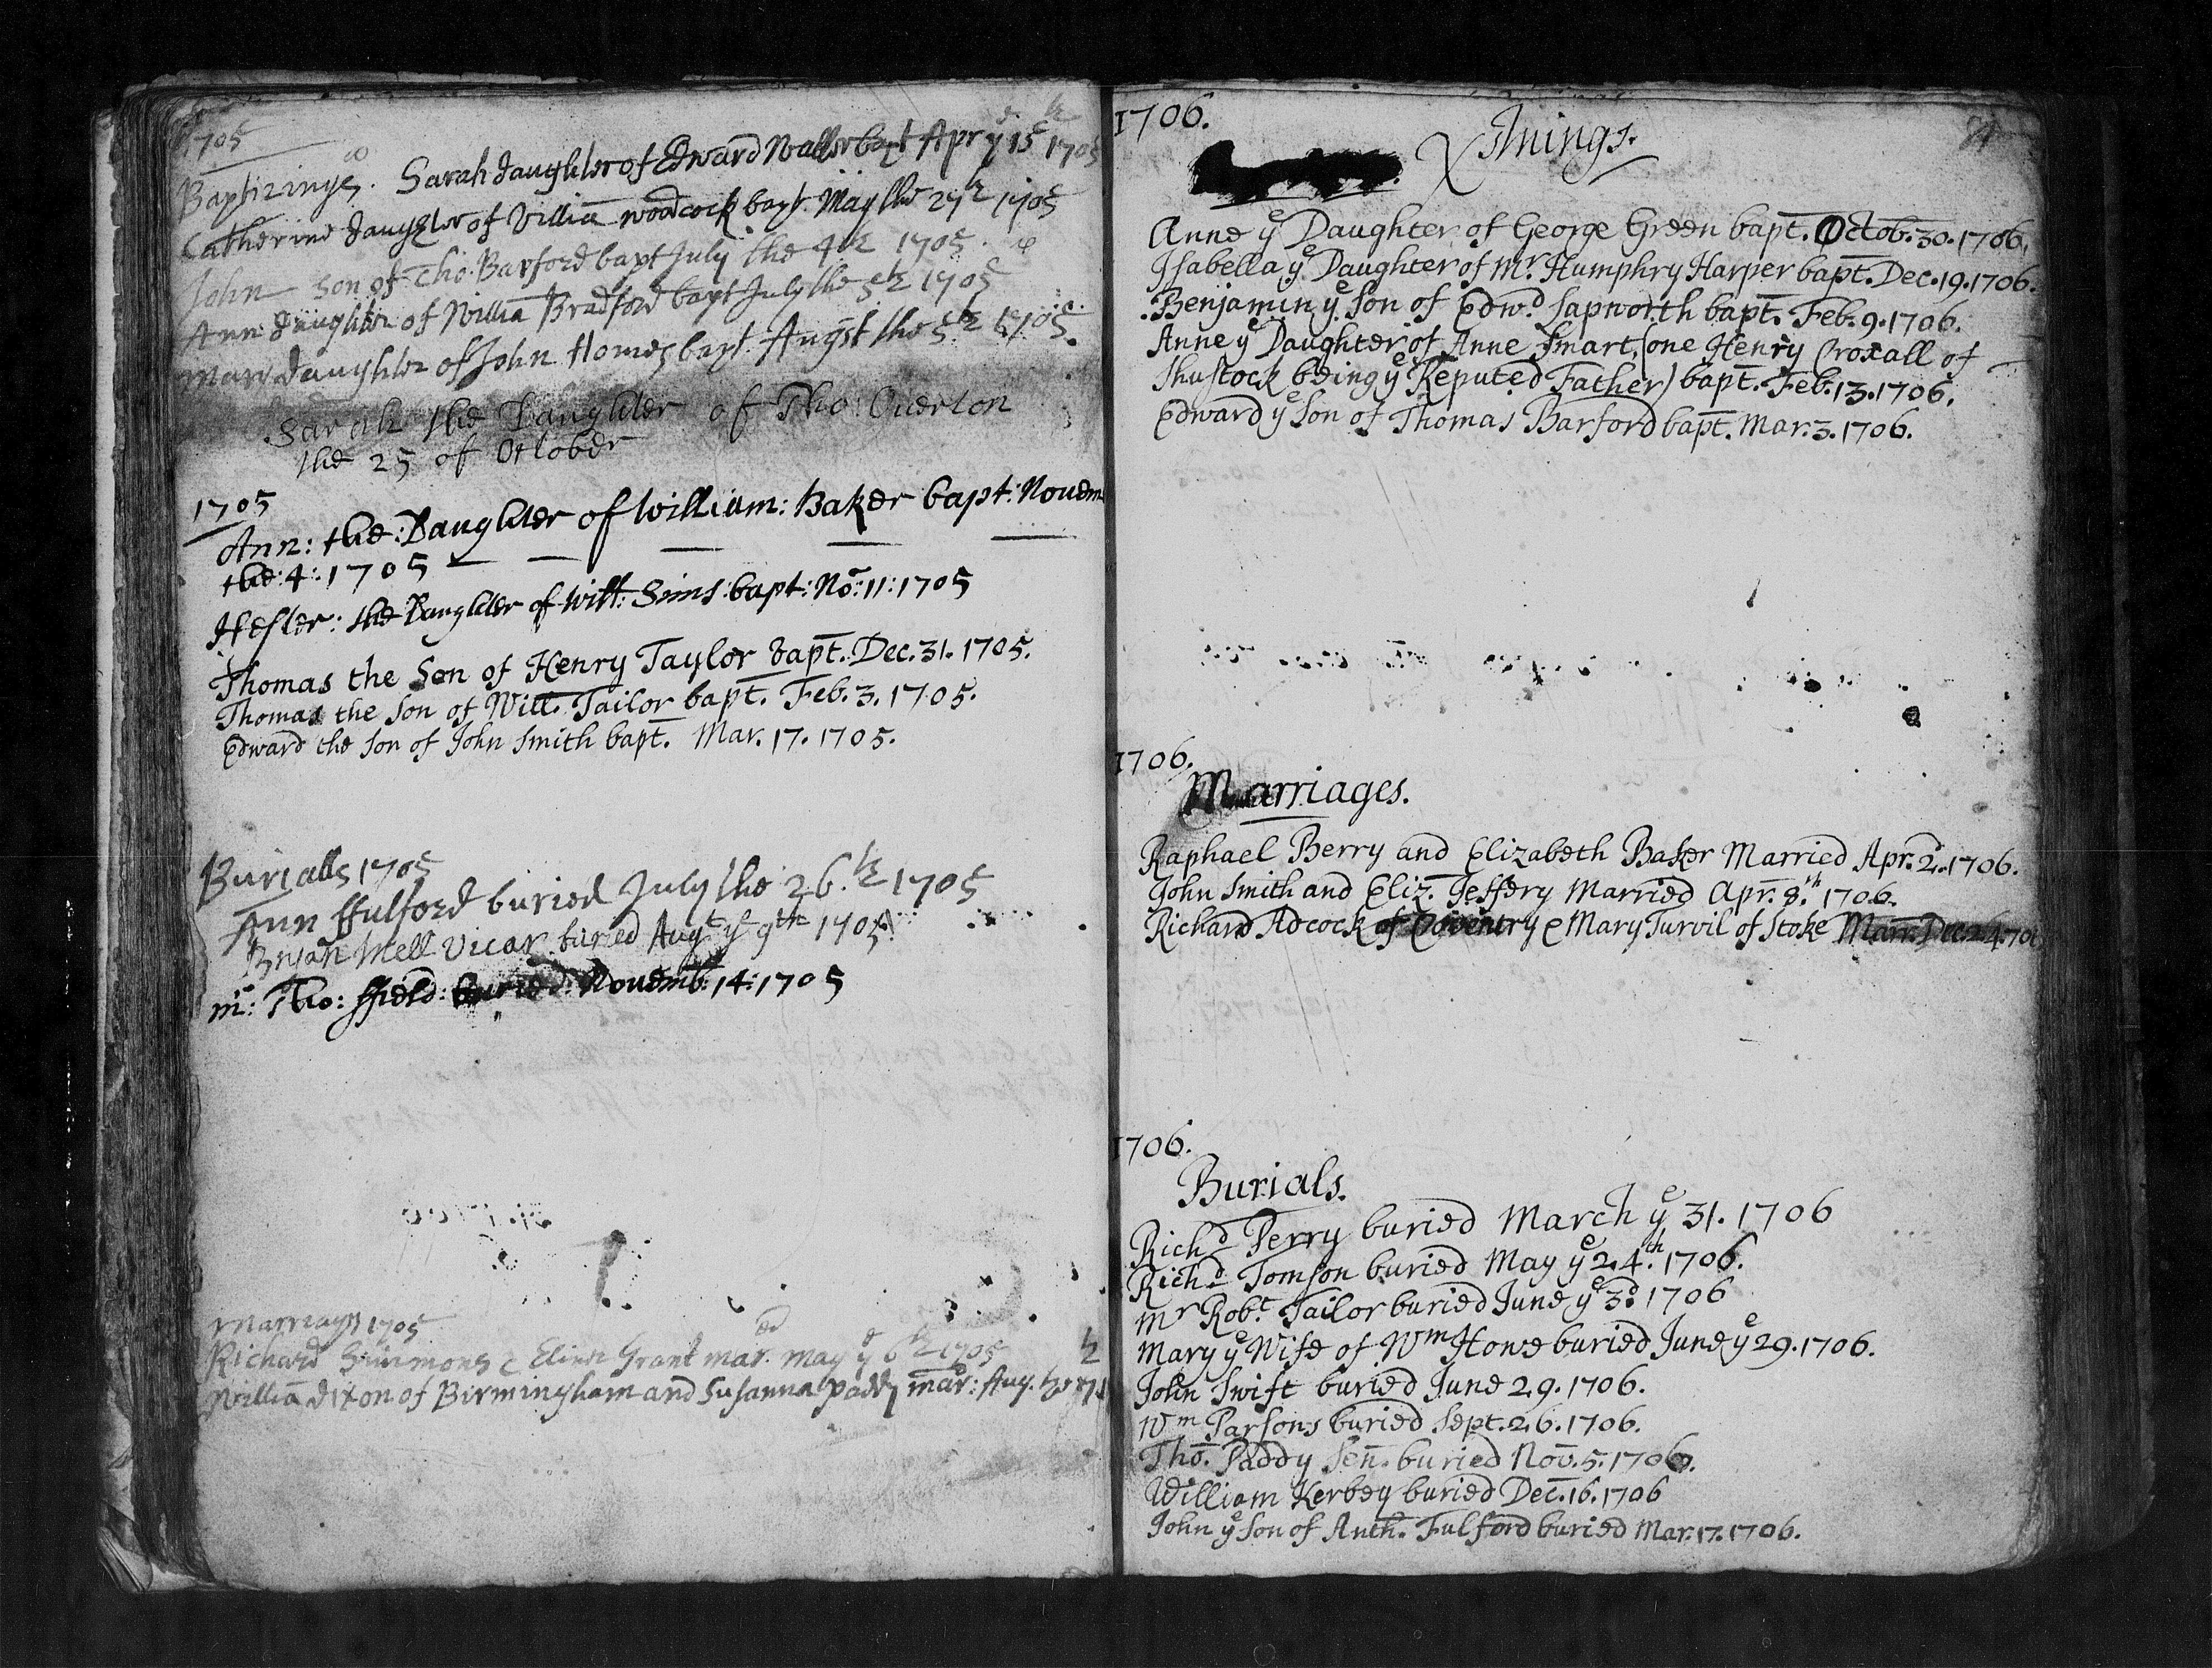 1705
Baptizings. Sarah daughter of Edward Waller bapt Apr yᵉ 15ᵗʰ 1705
Catherine daughter of Williā woodcock bapt. May the 27ᵗʰ 1705
John son of Tho. Barford bapt July the 4ᵗʰ 1705
Ann daughter of Williā Bradford bapt July the 5ᵗʰ 1705
Mary daughter of John Homes bapt. August the 5ᵗʰ 1705.
Sarah the Daughter of Tho: Overton
the 25 of October
1705
Ann: the: Daughter of William: Baker bapt: Novem
the: 4: 1705
Hester: the Daughter of Will: Sims: bapt: No: 11: 1705
Thomas the Son of Henry Taylor bapt. Dec. 31. 1705.
Thomas the Son of Will. Tailor bapt. Feb. 3. 1705.
Edward the Son of John Smith bapt. Mar. 17. 1705.
Burialls 1705
Ann ffulford buried July the 26.ᵗʰ 1705
Bryan Mell Vicar buried Augᵗ yᵉ 9ᵗʰ 1705
mʳ: Tho: ffield: buried: Novemb: 14: 1705
Marriages 1705
Richard Simmons & Elinor Grant mar. May yᵉ 6ᵗʰ 1705
Williā dixon of Birmingham and Susanna Paddy mar: Aug.
1706.
Xstnings.
Anne yᵉ Daughter of George Green bapt. Octob. 30. 1706.
Isabella yᵉ Daughter of Mʳ. Humphry Harper bapt. Dec. 19. 1706.
Benjamin yᵉ Son of Edwᵈ. Sapworth bapt. Feb. 9. 1706.
Anne yᵉ Daughter of Anne Smart, (one Henry Croxall of
Shustock being yᵉ Reputed Father) bapt. Feb. 13. 1706.
Edward yᵉ Son of Thomas Barford bapt. Mar. 3. 1706.
1706.
Marriages.
Raphael Berry and Elizabeth Baker Married Apr. 2ᵈ. 1706.
John Smith and Eliz. Jeffery Married Apr. 8.ᵗʰ 1706.
Richard Adcock of Coventry & Mary Turvil of Stoke Marr. Dec. 24. 706
1706.
Burials.
Richᵈ Perry buried March yᵉ 31. 1706
Richᵈ Tomson buried May yᵉ 24.ᵗʰ 1706.
Mʳ Robᵗ Tailor buried June yᵉ 3ᵈ. 1706
Mary yᵉ Wife of Wᵐ Howe buried June yᵉ 29. 1706.
John Swift buried June 29. 1706.
Wᵐ Parsons buried Sept. 26. 1706.
Tho. Paddy Sen. buried Nov. 5. 1706.
William Kerbey buried Dec. 16. 1706
John yᵉ Son of Anth. Fulford buried Mar. 17. 1706.